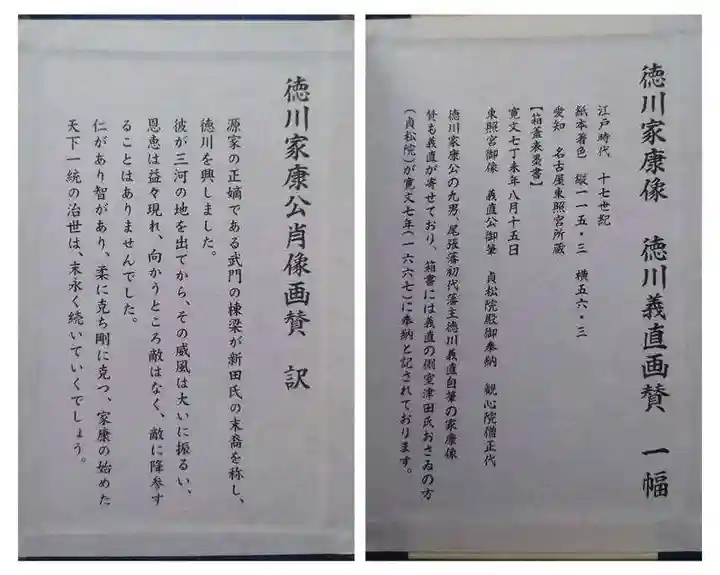 徳川家康像　徳川義直画賛　一幅
江戸時代　十七世紀
紙本著色　縦一一五・三　横五六・三
愛知　名古屋東照宮所蔵
【箱蓋表墨書】
寛文七丁未年八月十五日
東照宮御像　義直公御筆　貞松院殿御奉納　観心院僧正代
徳川家康公の九男、尾張藩初代藩主徳川義直自筆の家康像
賛も義直が寄せており、箱書には義直の側室津田氏おさゐの方
(貞松院)が寛文七年(一六六七)に奉納と記されております。
徳川家康公肖像画賛　訳
源家の正嫡である武門の棟梁が新田氏の末裔を称し、
徳川を興しました。
彼が三河の地を出てから、その威風は大いに振るい、
恩恵は益々現れ、向かうところ敵はなく、敵に降参す
ることはありませんでした。
仁があり智があり、柔に克ち剛に克つ、家康の始めた
天下一統の治世は、末永く続いていくでしょう。